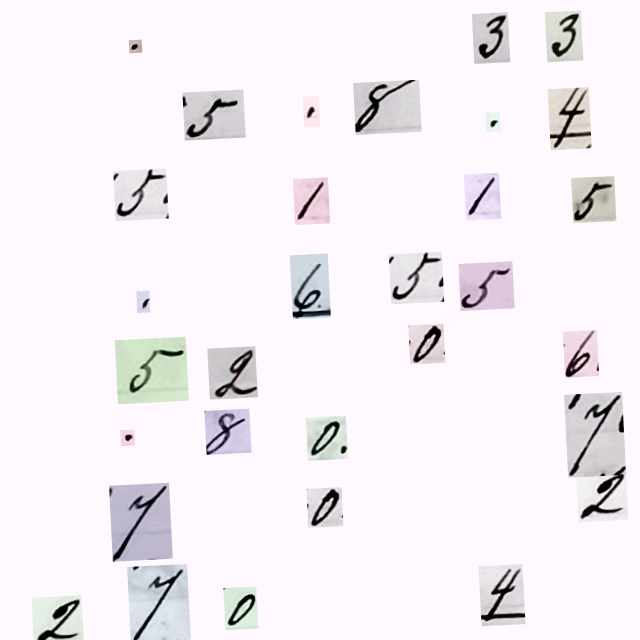 . 3 3
5 . 8 . 4
5 1 1 5
. 6 5 5
5 2 0 6
. 8 0 7
7 0 2
2 7 0 4